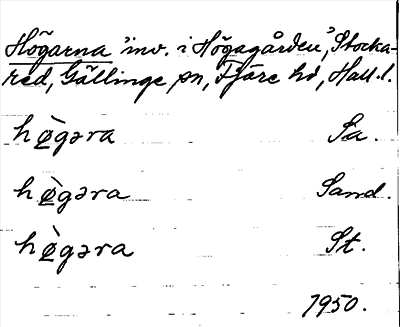 Högarna "inv. i Högagården," Stocka-
red, Gällinge sn, Fjäre hd, Hall. l.
hø̀gəra Sa.
hø̀gəra Sand.
hø̀gəra St.
1950.